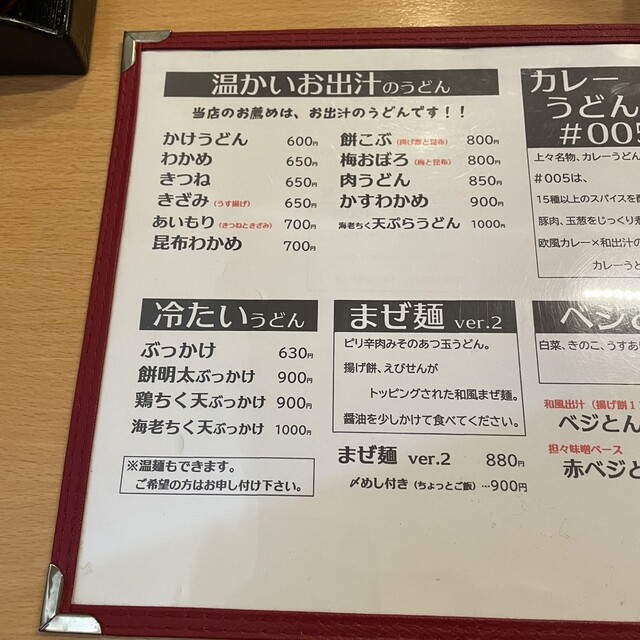 温かいお出汁のうどん
当店のお薦めは、お出汁のうどんです！！
かけうどん 600円
わかめ 650円
きつね 650円
きざみ（うす揚げ） 650円
あいもり（きつねときざみ） 700円
昆布わかめ 700円
餅こぶ（揚げ餅と昆布） 800円
梅おぼろ（梅と昆布） 800円
肉うどん 850円
かすわかめ 900円
海老ちく天ぷらうどん 1000円
カレー
うどん
＃005
上々名物、カレーうどん
＃005は、
15種以上のスパイスを
豚肉、玉葱をじっくり
欧風カレー×和出汁の
カレーうと
冷たいうどん
ぶっかけ 630円
餅明太ぶっかけ 900円
鶏ちく天ぶっかけ 900円
海老ちく天ぶっかけ 1000円
※温麺もできます。
ご希望の方はお申し付け下さい。
まぜ麺 ver.2
ピリ辛肉みそのあつ玉うどん。
揚げ餅、えびせんが
トッピングされた和風まぜ麺。
醤油を少しかけて食べてください。
まぜ麺 ver.2 880円
〆めし付き（ちょっとご飯）…900円
ベジと
白菜、きのこ、うすあ
和風出汁（揚げ餅1
ベジとん
担々味噌ベース
赤ベジと